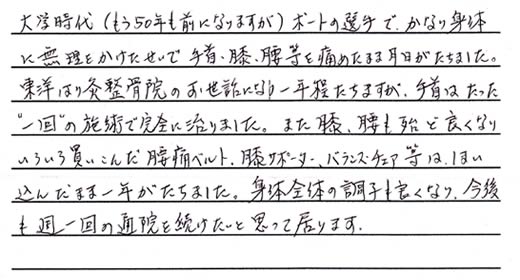 大学時代（もう50年も前になりますが）ボートの選手で、かなり身体
に無理をかけたせいで手首、膝、腰等を痛めたまま月日がたちました。
東洋はり灸整骨院のお世話になり一年程たちますが、手首はたった
"一回"の施術で完全に治りました。また膝、腰も殆ど良くなり
いろいろ買いこんだ腰痛ベルト、膝サポーター、バランスチェア等は、しまい
込んだまま一年がたちました。身体全体の調子も良くなり、今後
も週一回の通院を続けたいと思って居ります。